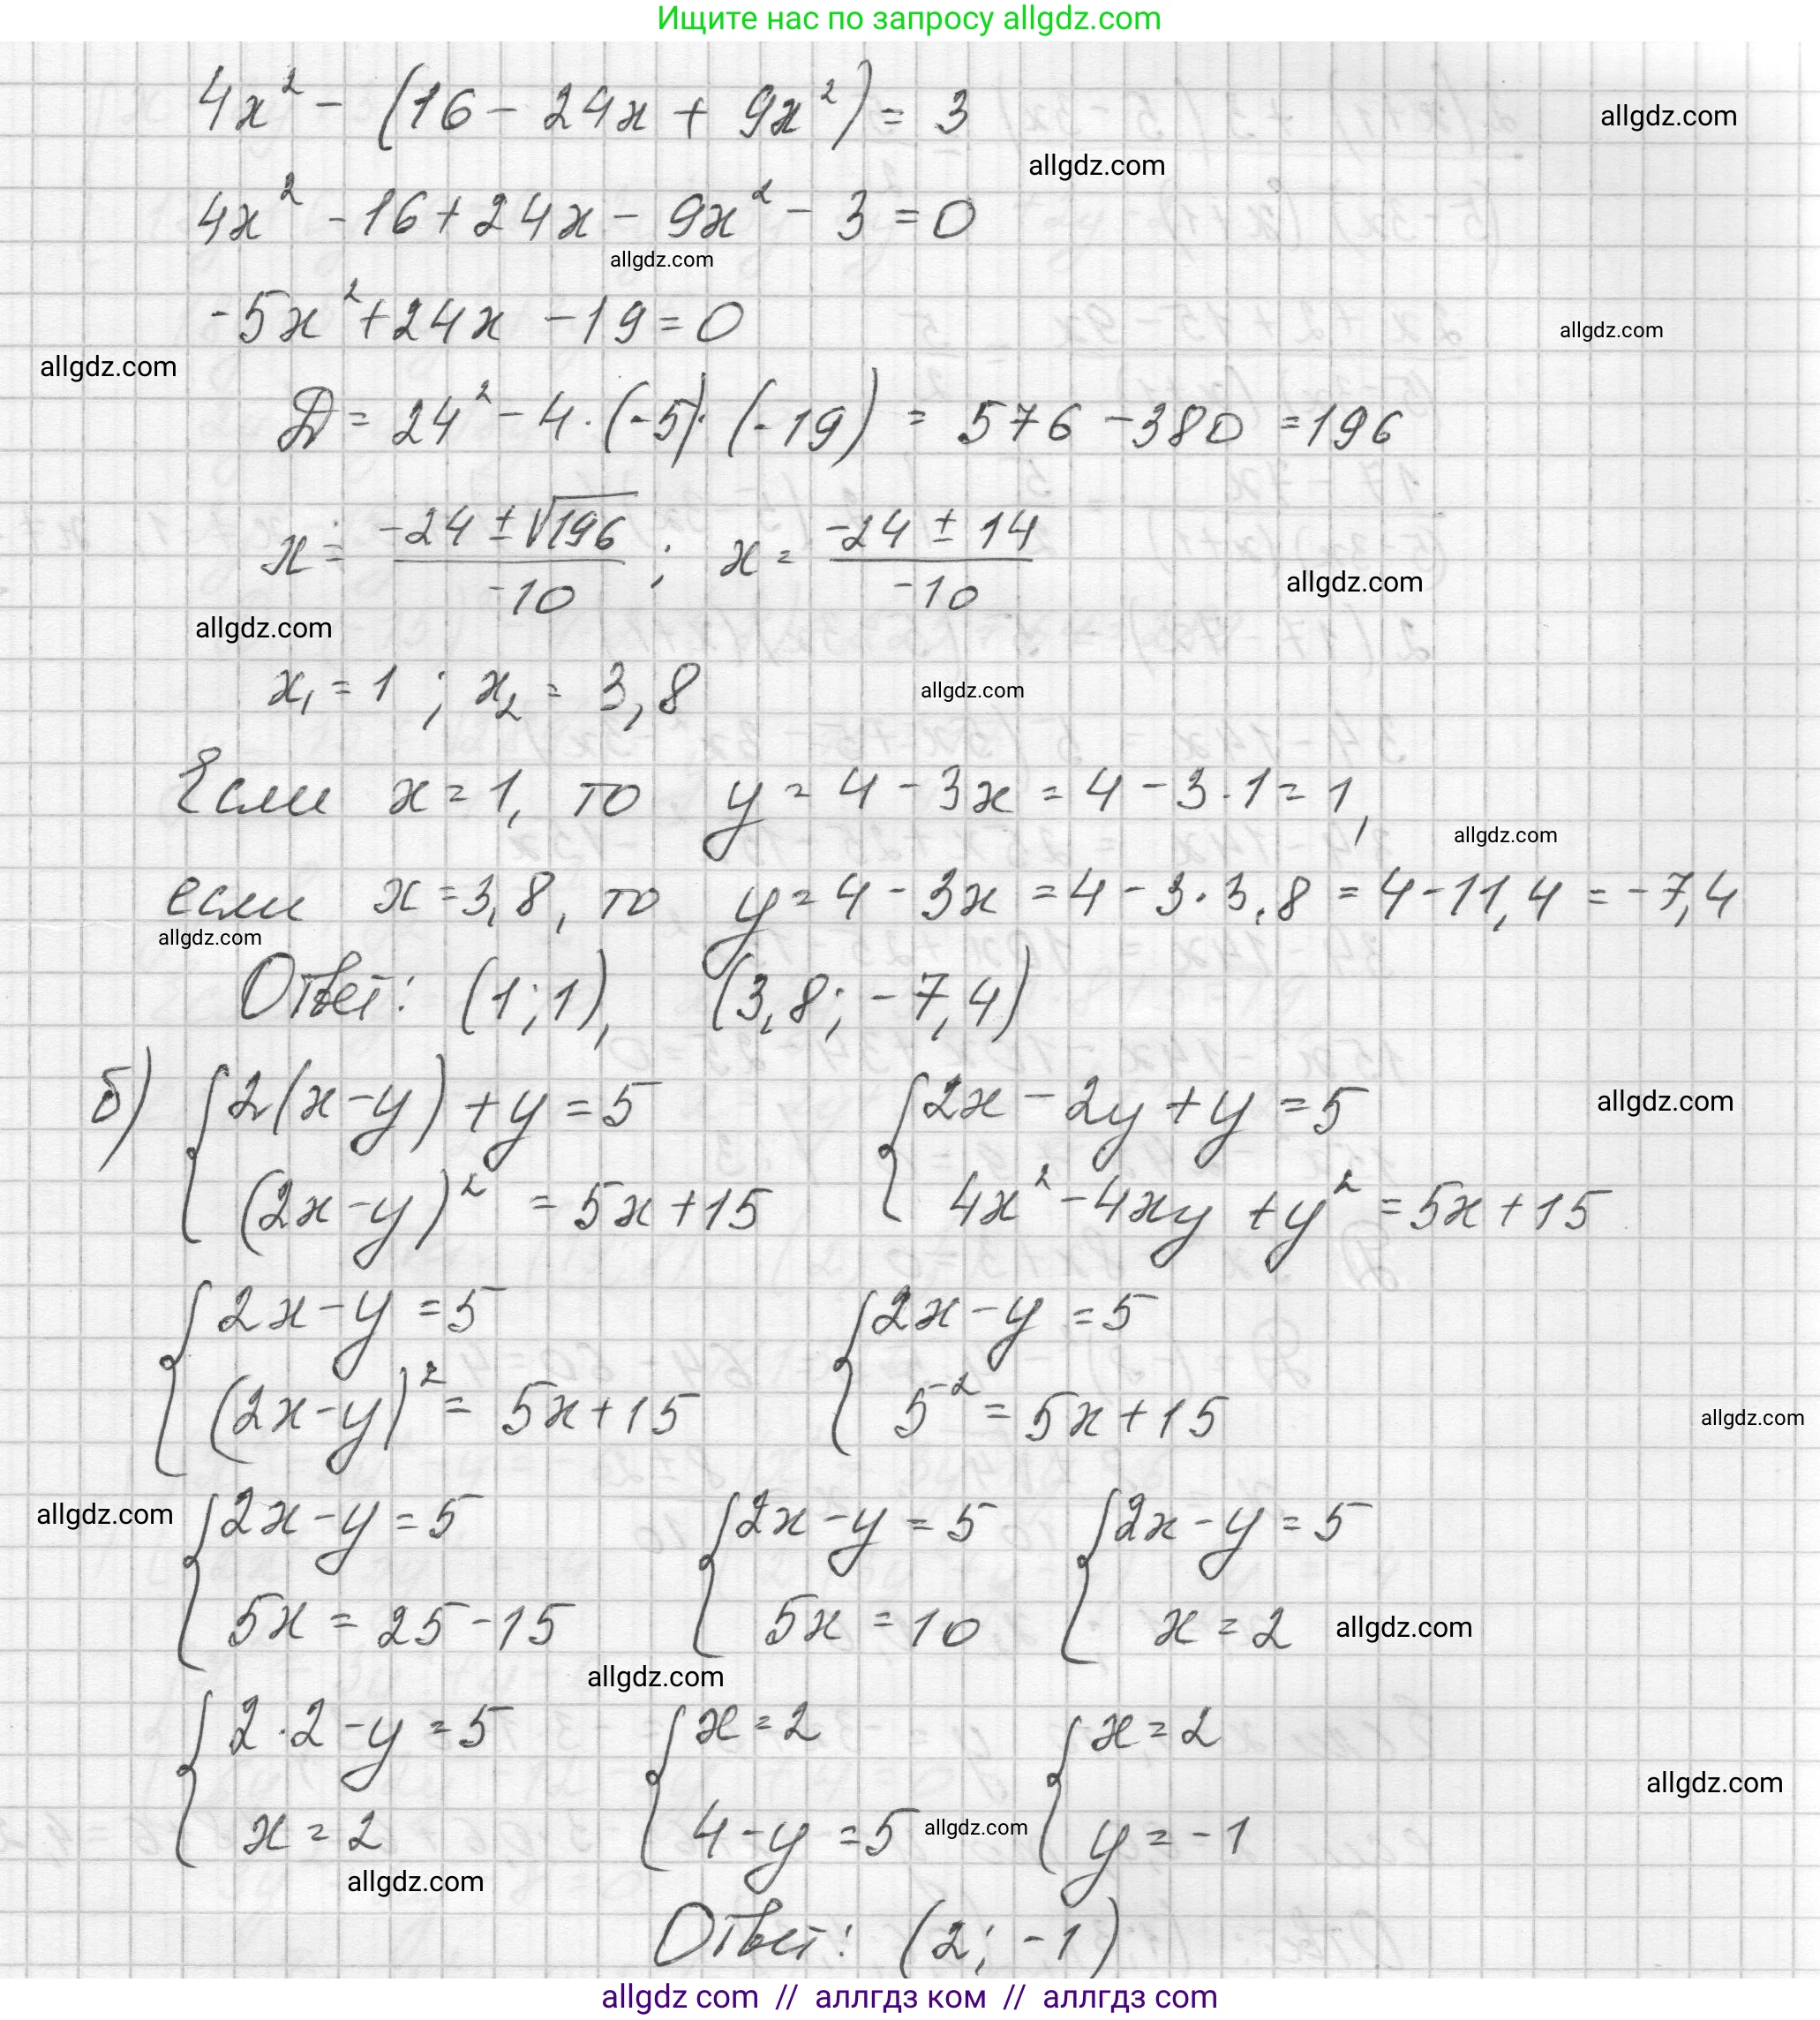 Ищите нас по запросу allgdz.com
4x² - (16 - 24x + 9x²) = 3
allgdz.com
allgdz.com
4x² - 16 + 24x - 9x² - 3 = 0
allgdz.com
-5x² + 24x - 19 = 0
allgdz.com
allgdz.com
D = 24² - 4 · (-5) · (-19) = 576 - 380 = 196
x = (-24 ± √196)/(-10) ; x = (-24 ± 14)/(-10)
allgdz.com
allgdz.com
x₁ = 1 ; x₂ = 3,8
allgdz.com
Если x = 1, то y = 4 - 3x = 4 - 3 · 1 = 1,
allgdz.com
если x = 3,8, то y = 4 - 3x = 4 - 3 · 3,8 = 4 - 11,4 = -7,4
allgdz.com
Ответ: (1; 1), (3,8; -7,4)
б) { 2(x - y) + y = 5 { 2x - 2y + y = 5
allgdz.com
(2x - y)² = 5x + 15 4x² - 4xy + y² = 5x + 15
{ 2x - y = 5 { 2x - y = 5
(2x - y)² = 5x + 15 5² = 5x + 15
allgdz.com
allgdz.com
{ 2x - y = 5 { 2x - y = 5 { 2x - y = 5
5x = 25 - 15 5x = 10 x = 2
allgdz.com
allgdz.com
{ 2 · 2 - y = 5 { x = 2 { x = 2
allgdz.com
x = 2 4 - y = 5 y = -1
allgdz.com
allgdz.com
Ответ: (2; -1)
allgdz com // аллгдз ком // аллгдз com